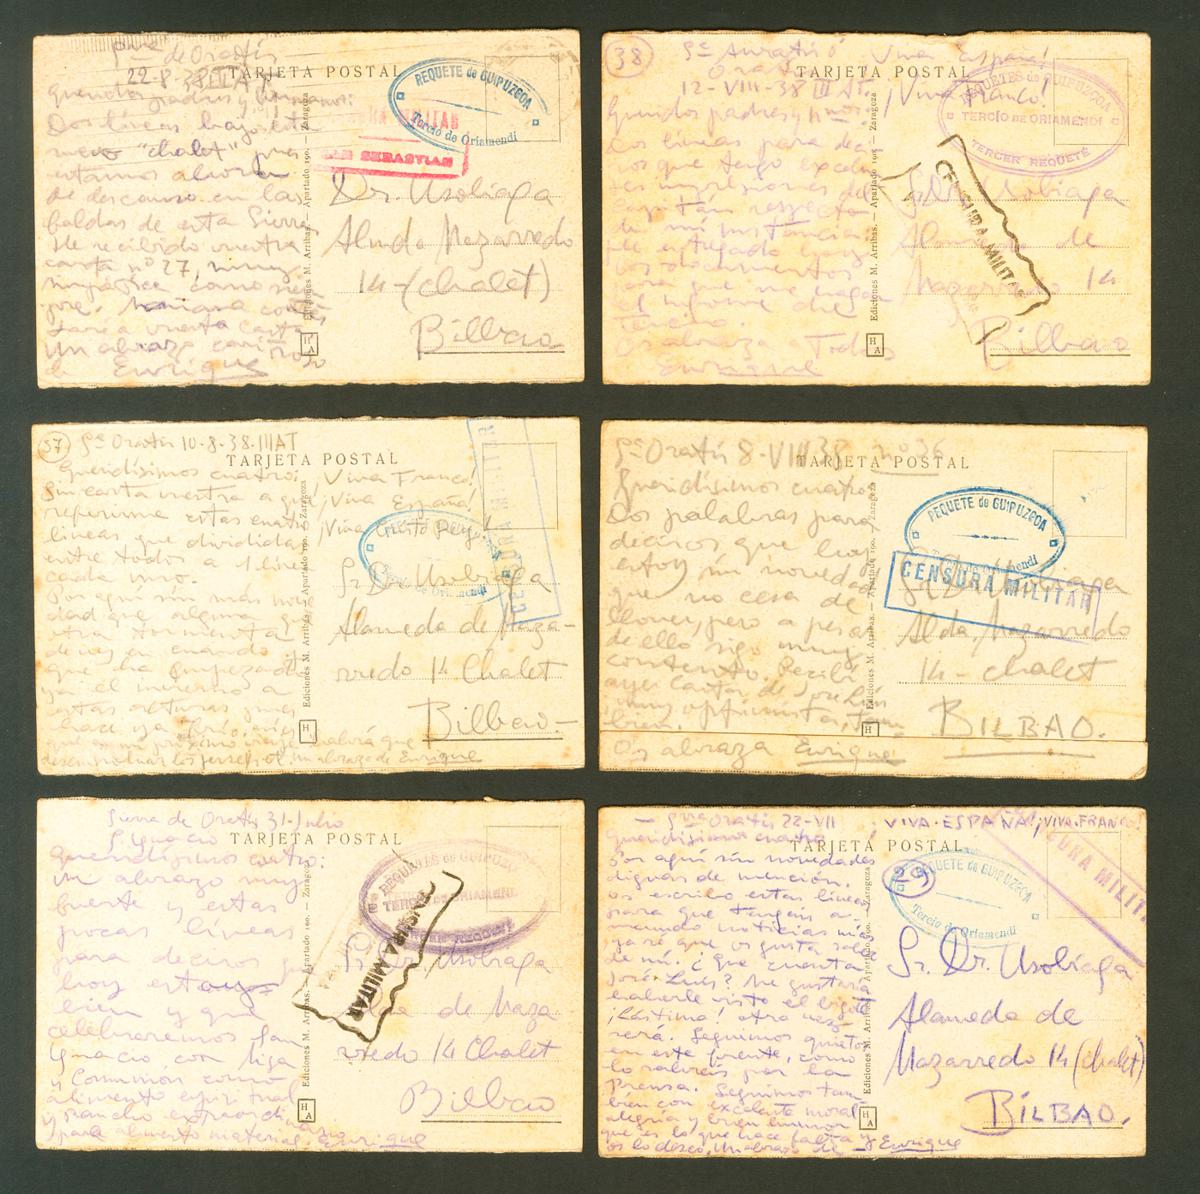 Sra de Oratis
22-8-38 III AT
TARJETA POSTAL
Queridos padres y hermanos:
Dos líneas bajo este
nuevo "chalet" pues
estamos ahora
de descanso en las
faldas de esta Sierra
He recibido vuestra
carta nº 27, muy
como siem
pre. Mañana contes
taré a vuestra carta
Un abrazo cariñoso
de Enrique
REQUETE de GUIPUZCOA
Tercio de Oriamendi
MILITAR
SAN SEBASTIAN
Dr. Usobiaga
Almda Mazarredo
14-(chalet)
Bilbao
Ediciones M. Arribas. — Apartado 190. — Zaragoza
HA
38
Viva España!
TARJETA POSTAL
12-VIII-38 III AT.
¡Viva Franco!
Queridos padres y hnos:
Dos líneas para deci
ros que tengo excelen
tes impresiones del
capitán respecto
de mi instancia
he entregado hoy
los documentos
para que me hagan
el informe del
Tercio.
Os abraza a Todos
Enrique
REQUETES de GUIPUZCOA
TERCIO DE ORIAMENDI
TERCER REQUETÉ
CENSURA MILITAR
Sr. Dr. Usobiaga
Alameda de
Mazarredo 14
Bilbao
Ediciones M. Arribas. — Apartado 190. — Zaragoza
HA
37
Sa Oratis 10-8-38-III AT
TARJETA POSTAL
Queridísimos cuatro:
¡Viva Franco!
¡Viva España!
¡Viva Cristo Rey!
Sin carta vuestra a q
referirme estas cuatro
líneas que divididas
entre todos a 1 línea
cada uno.
Por aquí sin más nove
dad que alguna q
otra tormenta
de vez en cuando
que ha empezado
ya el invierno a
estas alturas pues
hace ya frío
que en mi próximo viaje habrá que
desempolvar los jerseys. Un abrazo de Enrique
REQUETE de GUIPUZCOA
Tercio de Oriamendi
CENSURA MILITAR
Sr. Dr. Usobiaga
Alameda de Maza-
rredo 14 Chalet
Bilbao-
Ediciones M. Arribas. Apartado 190. — Zaragoza
H
Sa Oratis 8-VIII-38 nº 36
TARJETA POSTAL
Queridísimos cuatro:
Dos palabras para
deciros que hoy
estoy sin novedad
que no cesa de
llover, pero a pesar
de ello sigo muy
contento. Recibí
ayer carta de
muy optimista,
bien.
Os abraza Enrique
REQUETE de GUIPUZCOA
Tercio de Oriamendi
CENSURA MILITAR
Sr. Dr. Usobiaga
Alda. Mazarredo
14- chalet
BILBAO.
Ediciones M. Arribas. — Apartado 190. — Zaragoza
H
Sierra de Oratis 31-Julio
S. Ignacio
TARJETA POSTAL
Queridísimos cuatro:
Un abrazo muy
fuerte y estas
pocas líneas
para deciros q
hoy estoy
bien y que
celebraremos San
Ignacio con Misa
y Comunión como
alimento espiritual
y rancho extraordinario
para alimento material. Enrique
REQUETES de GUIPUZCOA
TERCIO DE ORIAMENDI
TERCER REQUETÉ
CENSURA MILITAR
Sr. Dr. Usobiaga
Alda de Maza
rredo 14 Chalet
Bilbao
Ediciones M. Arribas. — Apartado 190. — Zaragoza
HA
- Sra Oratis 22-VII
VIVA·ESPAÑA! ¡VIVA·FRANCO!
TARJETA POSTAL
Queridísimos cuatro:
Por aquí sin novedades
dignas de mención.
os escribo estas líneas
para que tengáis a
menudo noticias mías
ya sé que os gusta saber
de mí. ¿Que cuenta
José-Luis? Me gustaría
haberle visto el bigote
¡Lástima! otra vez
será. Seguimos quietos
en este frente, como
lo sabréis por la
Prensa. Seguimos tam
bién con excelente moral
alegría y buen humor
que es lo que hace falta y
os lo deseo. Un abrazo de Enrique
29
REQUETE de GUIPUZCOA
Tercio de Oriamendi
CENSURA MILITAR
Sr. Dr. Usobiaga
Alameda de
Mazarredo 14 (chalet)
BILBAO.
Ediciones M. Arribas. — Apartado 190. — Zaragoza
HA